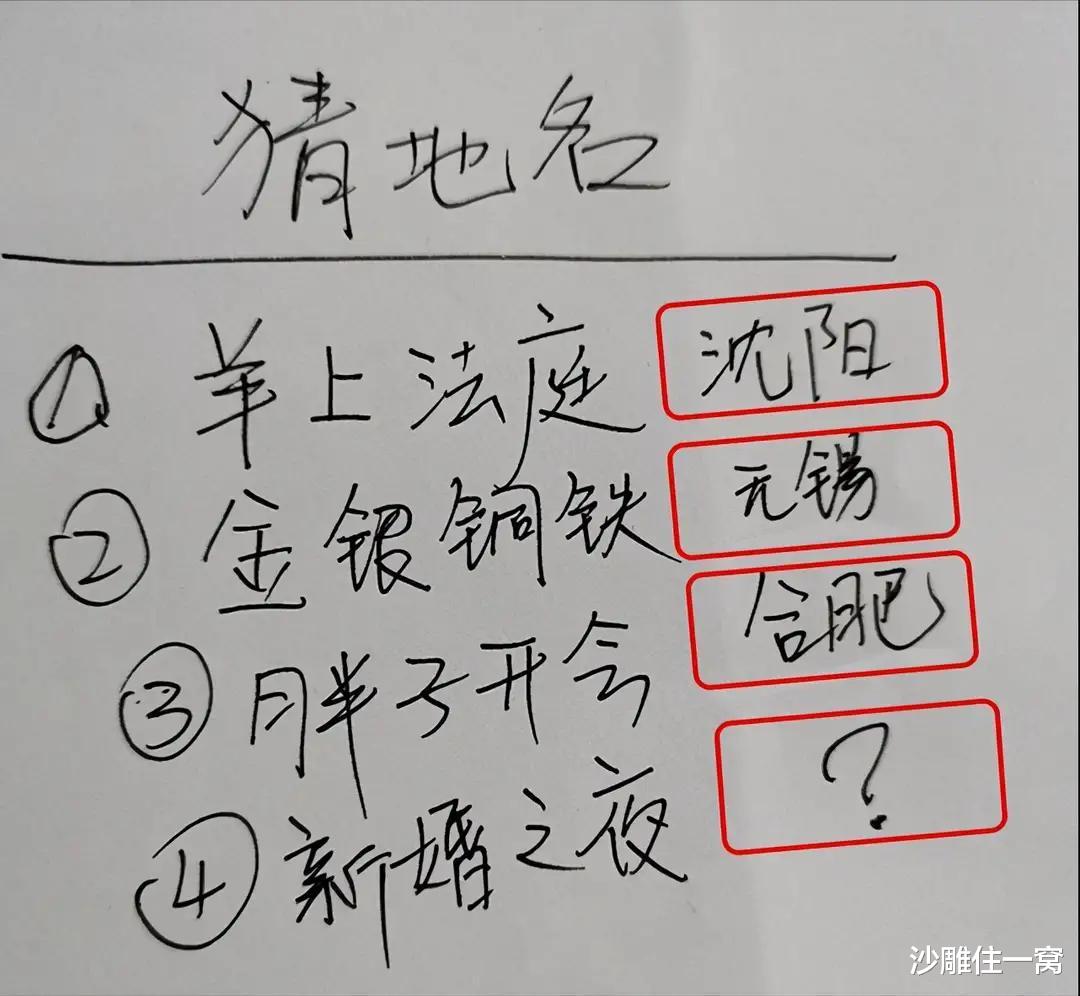 猜地名
① 羊上法庭 沈阳
② 金银铜铁 无锡
③ 胖子开会 合肥
④ 新婚之夜 ?
沙雕住一窝